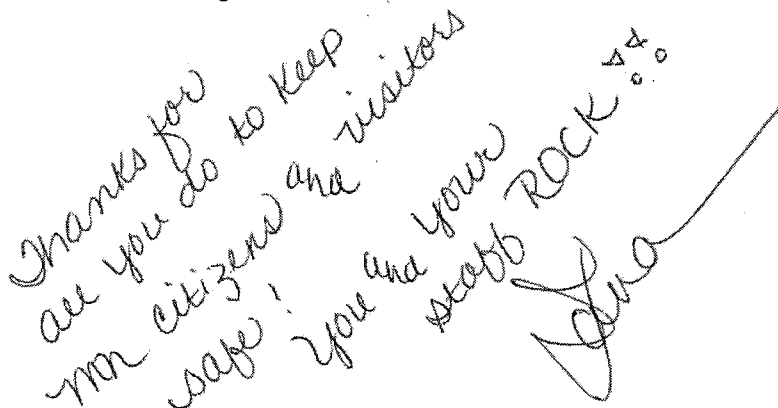 Thanks for
all you do to keep
mn citizens and visitors
safe! You and your
staff ROCK!!